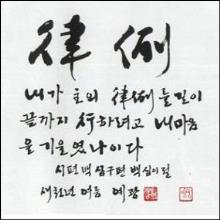 律例
내가 주의 律例를 길이
끝까지 行하려고 내 마음
을 기울였나이다
시편 백십구편 백십이절
새천년 여름